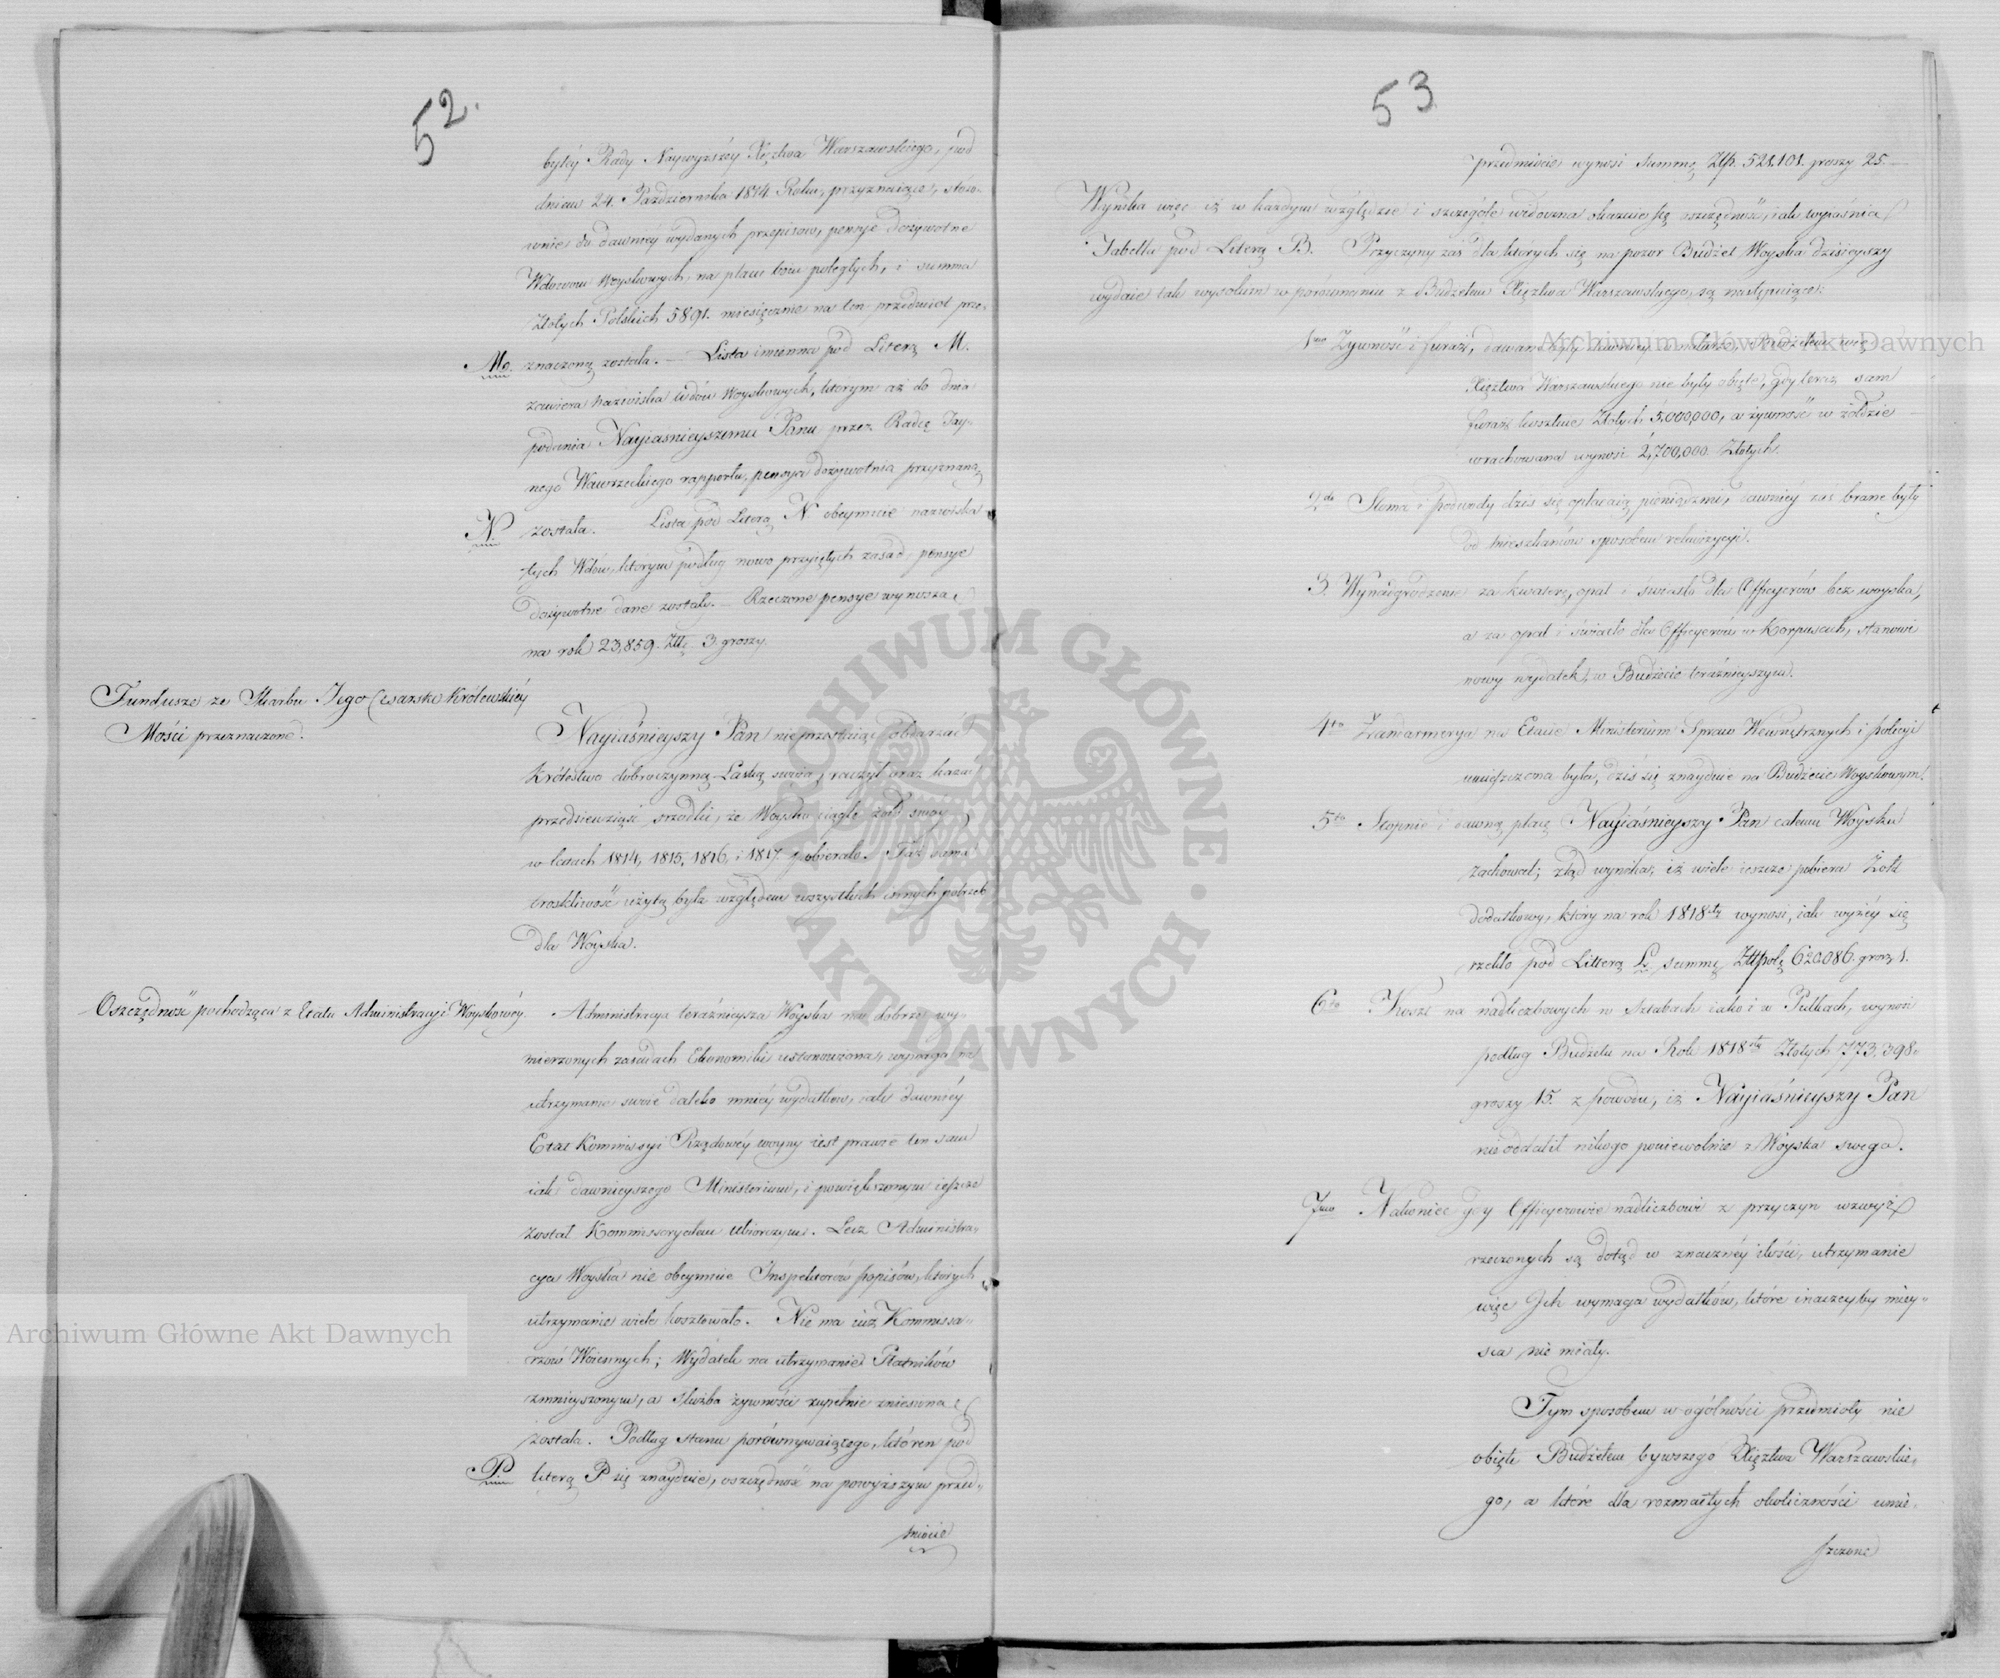 52.
byłéy Rady Naywyższéy Xięztwa Warszawskiego, pod
dniem 24. Października 1814 Roku, przyznaiące, stóso-
wnie do dawniéy wydanych przepisow, pensye dożywotne
Wdowom Woyskowych, na placu boiu poległych, i summa
Złotych Polskich 5891. miesięcznie na ten przedmiot prze-
M. znaczoną została. — Lista imienna pod Literą M.
zawiera nazwiska Wdów Woyskowych, którym aż do dnia
podania Nayiaśnieyszemu Panu przez Radcę Tay-
nego Wawrzeckiego rapportu, pensya dożywotnia przyznaną
N. została. — Lista pod Literą N obeymuie nazwiska
tych Wdów, którym podług nowo przyiętych zasad pensye
dożywotne dane zostały. — Rzeczone pensye wynoszą
na rok 23,859. Złł. 3 groszy.
Fundusze ze Skarbu Jego Cesarsko Królewskiéy
Mości przeznaczone.
Nayiaśnieyszy Pan nieprzestaiąc obdarzać
Królestwo dobroczynną Łaską swoią, raczył oraz kazać
przedsiewziąść srzodki, że Woysko ciągle żołd swoy
w latach 1814, 1815, 1816, i 1817. pobierało. Taż sama
troskliwość użytą była względem wszystkich innych potrzeb
dla Woyska.
Oszczędność pochodząca z Etatu Administracyi Woyskowéy.
Administracya teraźnieysza Woyska na dobrze wy-
mierzonych zasadach Ekonomiki ustanowiona, wymaga na
utrzymanie swoie daleko mniéy wydatków, iak dawniéy
Etat Kommissyi Rządowéy woyny iest prawie ten sam
iak dawnieyszego Ministerium, i powiększonym ieszcze
został Kommissoryatem Ubiorczym. Lecz Administra-
cya Woyska nie obeymuie Inspektorów popisów, których
utrzymanie wiele kosztowało. Nie ma iuż Kommissa-
rzów Woiennych; Wydatek na utrzymanie Płatników
zmnieyszonym, a Służba żywności zupełnie zniesioną
została. Podług stanu porównywaiącego, któren pod
P. literą P się znayduie, oszczędność na powyższym przed-
miocie
53
przedmiocie wynosi Summę Złp. 521.101. groszy 25. —
Wynika więc iż w każdym względzie i szczególe widoczna okazuie się oszczędność, iak wyiaśnia
Tabella pod Literą B. Przyczyny zaś dla których się na pozor Budżet Woyska dzisieyszy
wydaie tak wysokim w porównaniu z Budżetem Xięztwa Warszawskiego, są następuiące:
1mo Żywność i furaż, dawane były dawniéy w naturze, Budżetem więc
Xięztwa Warszawskiego nie były obięte, gdy teraz sam
furaż kosztuie Złotych 5,000,000, a żywność w żołdzie
wrachowana wynosi 2,700,000. Złotych.
2do Słoma i podwody dziś się opłacaią pieniędzmi, dawniéy zaś brane były
od mieszkańców sposobem rekwizycyi.
3. Wynadgrodzenie za kwaterę, opał i światło dla Officyerów bez woyska,
a za opał i światło dla Officyerów w Korpusach, stanowi
nowy wydatek, w Budżecie teraźnieyszym.
4to Żandarmerya na Etacie Ministerium Spraw Wewnętrznych i policyi
umieszczona była, dziś się znayduie na Budżecie Woyskowym.
5to Stopnie i dawną płacę Nayiaśnieyszy Pan całemu Woysku
zachował; ztąd wynika, iż wiele ieszcze pobiera Żołd
dodatkowy, który na rok 1818ty wynosi, iak wyżéy się
rzekło pod Litterą L. summę Złłpols. 620.086. groszy 1.
6to Koszt na nadliczbowych w Sztabach iako i w Pułkach, wynosi
podług Budżetu na Rok 1818ty Złotych 773,398.
groszy 15. z powodu, iż Nayiaśnieyszy Pan
nieoddalił nikogo poniewolnie z Woyska swego.
7mo Nakoniec gdy Officyerowie nadliczbowi z przyczyn wzwyż
rzeczonych są dotąd w znacznéy ilości, utrzymanie
więc Ich wymaga wydatków, które inaczeyby miey-
sca nie miały.
Tym sposobem w ogólności przedmioty nie
obięte Budżetem bywszego Xięztwa Warszawskie-
go, a które dla rozmaitych okoliczności umie-
szczone
Archiwum Główne Akt Dawnych
Archiwum Główne Akt Dawnych
ARCHIWUM GŁÓWNE · AKT DAWNYCH ·